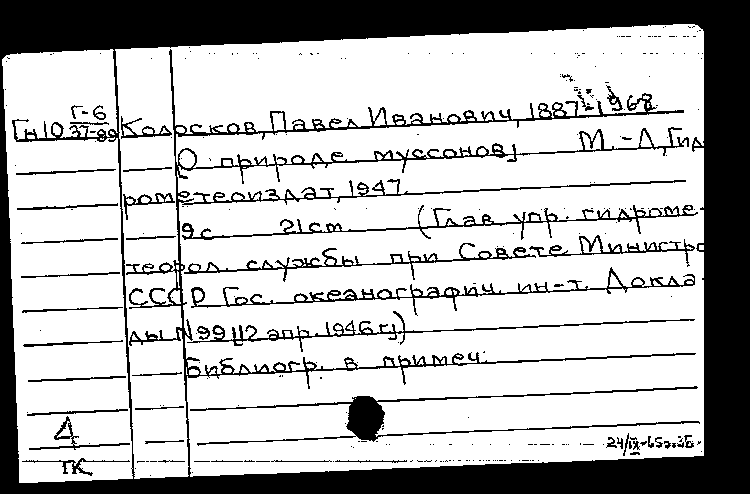 Гн10 Г-6
37-89 Колосков, Павел Иванович, 1887-1968
О природе муссонов] М.-Л, Гид-
рометеоиздат, 1947.
9с 21см. (Глав упр. гидроме-
теорол. службы при Совете Министро
СССР Гос. океанографич. ин-т. Докла-
ды №99 [12 апр. 1946г.])
Библиогр. в примеч.
Д
ПК
24/IX-65г.